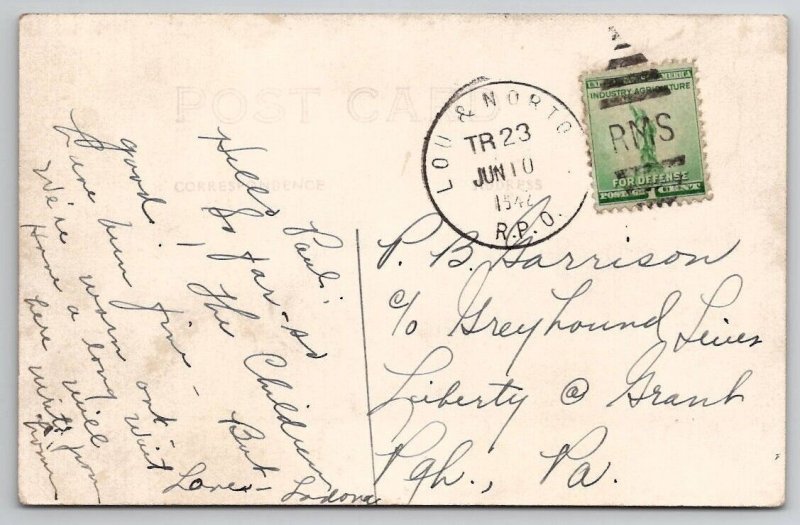 POST CARD
CORRESPONDENCE
ADDRESS
LOU & NORTO
TR 23
JUN 10
1942
R.P.O.
UNITED STATES OF AMERICA
INDUSTRY AGRICULTURE
RMS
FOR DEFENSE
POSTAGE 1 CENT
Hello Paul:
So far - so
good! The Children
have been fine - But
We're worn out -
Have a long wait
here will
write from
Home
Love - Ladona
P. B. Garrison
c/o Greyhound Lines
Liberty @ Grant
Pgh., Pa.